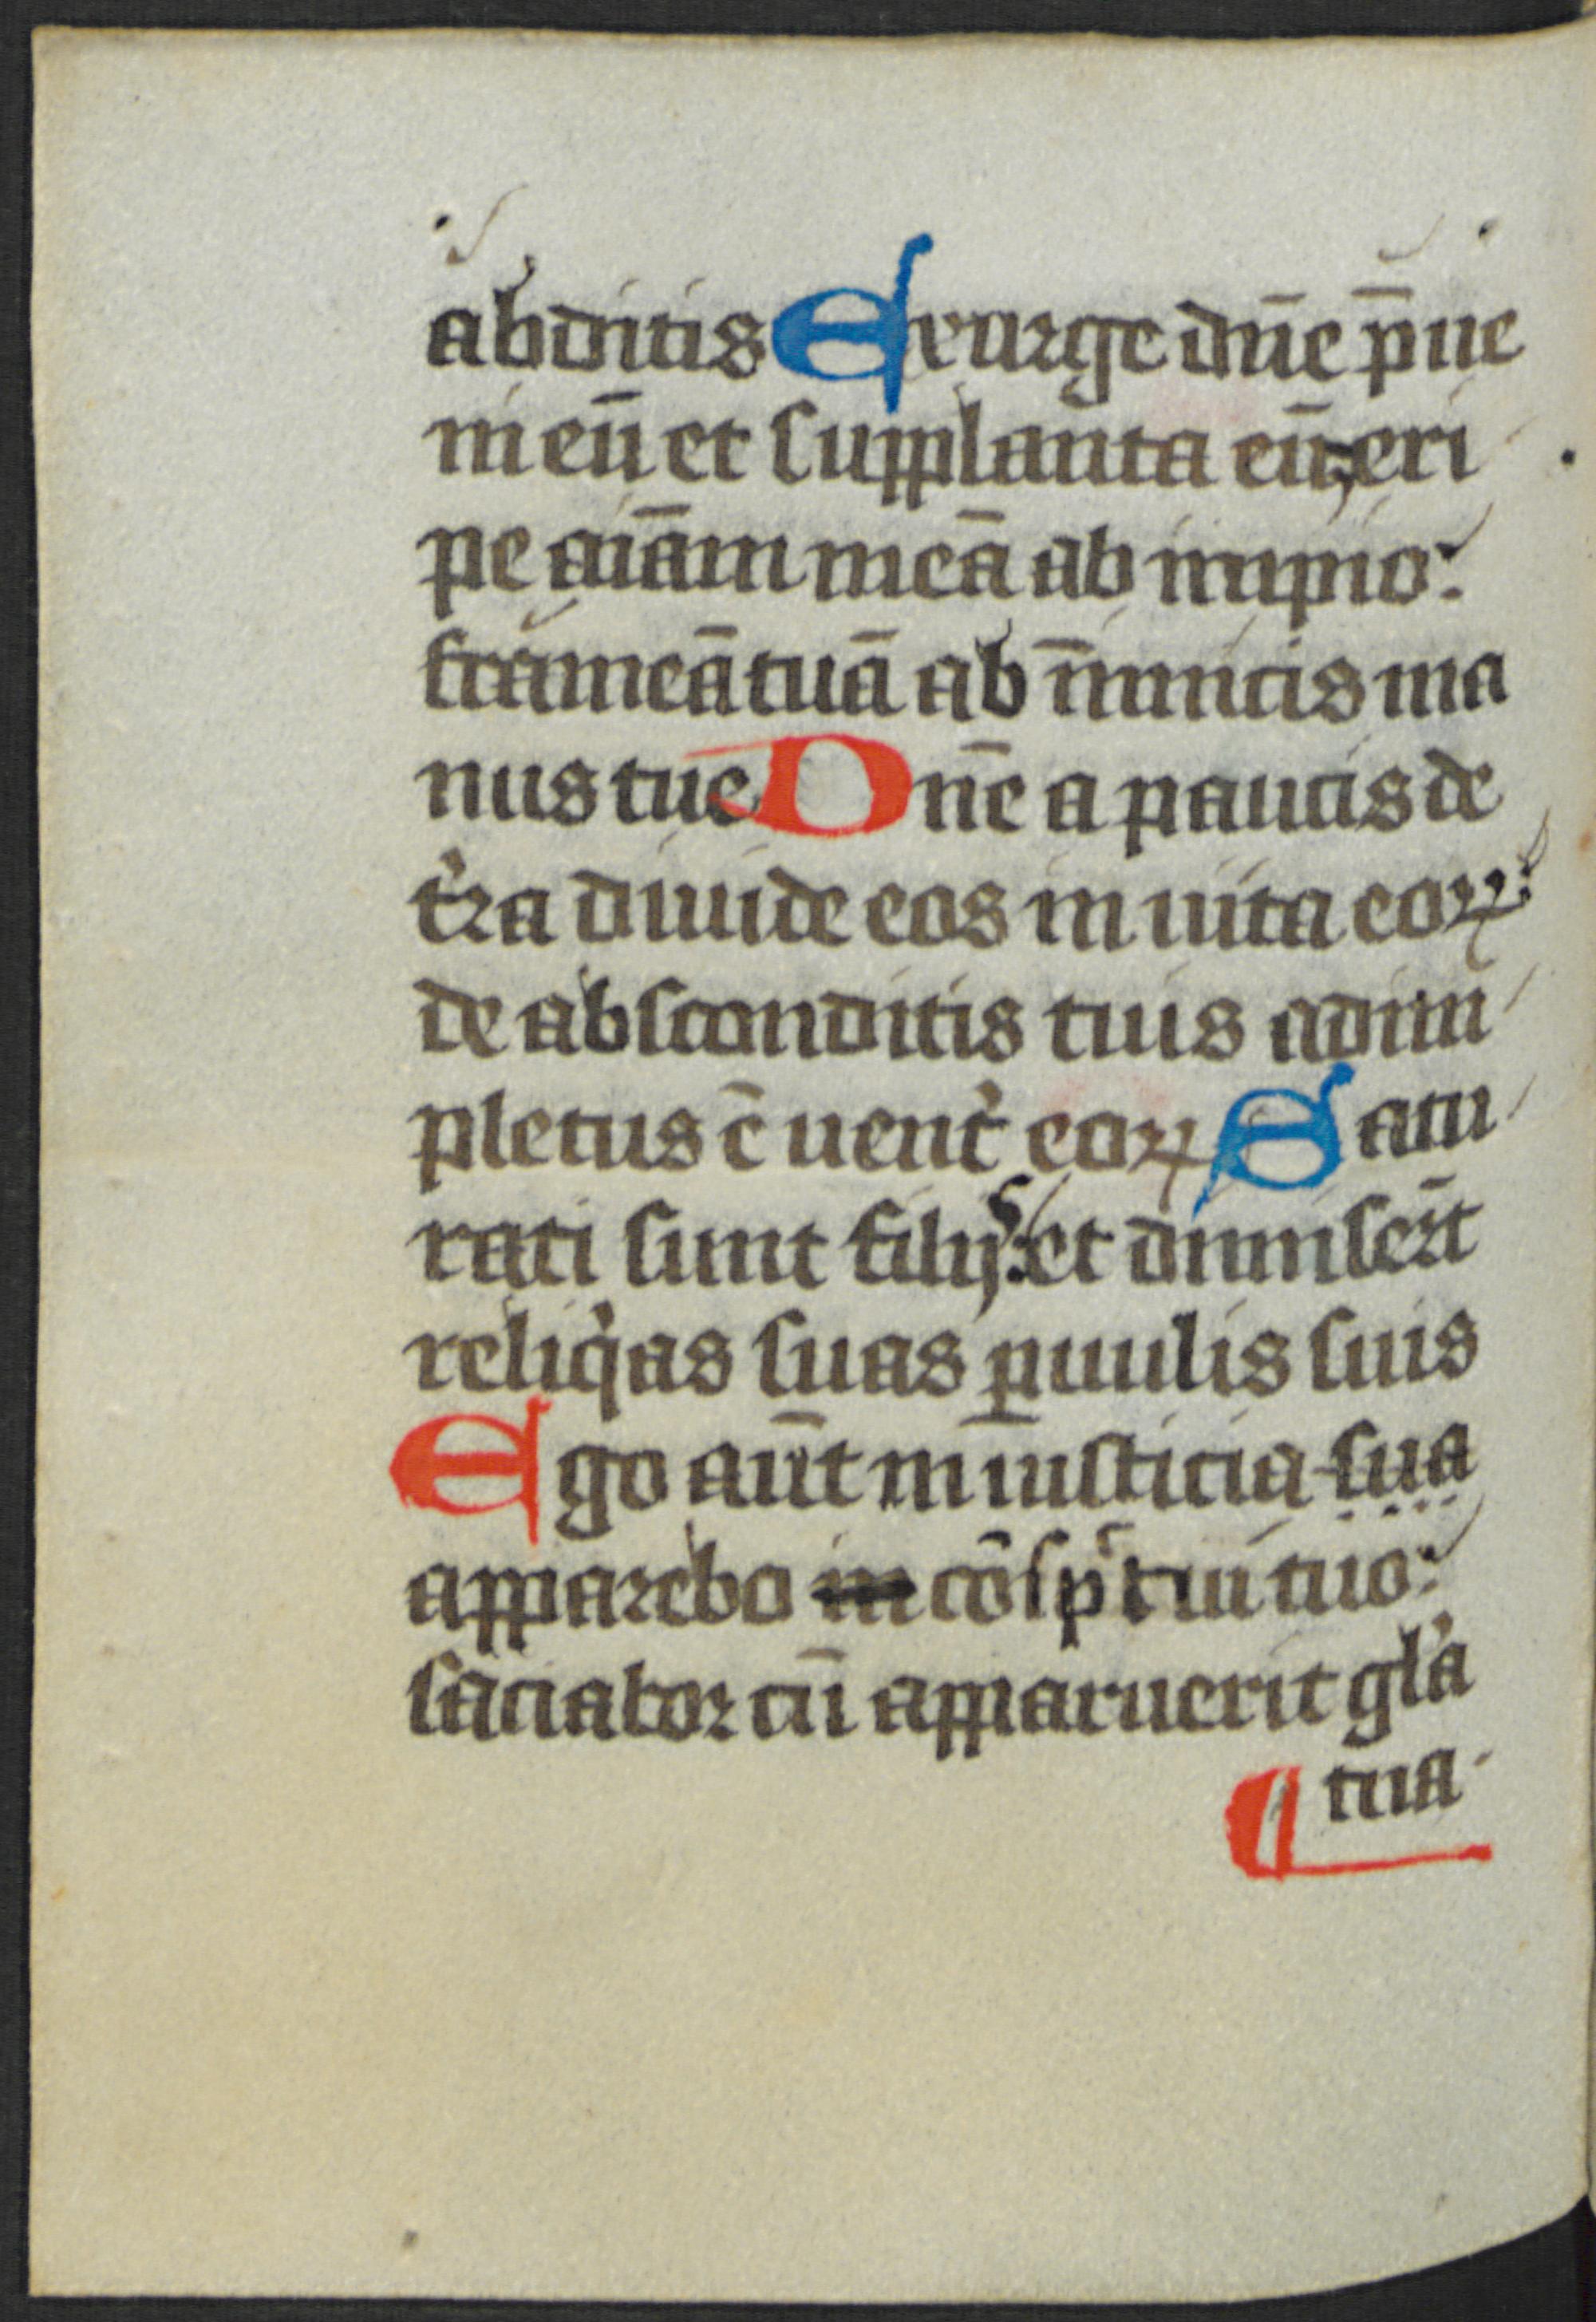 abditis Exurge dn̄e p̄ue
ni eū et supplanta eū, eri
pe aīam meā ab impio:
frameā tuā ab īnimicis ma
nus tue Dn̄e a paucis de
t̓ra diuide eos in uita eoꝝ:
de absconditis tuis adim
pletus ē uent̓ eoꝝ Satu
rati sunt filijs: et dimiser̄t
reliq̓as suas ꝑuulis suis
Ego aūt in iusticia sua
apparebo in cōsp̄ctui tuo:
saciabor cū apparuerit gl̓a
¶ tua.